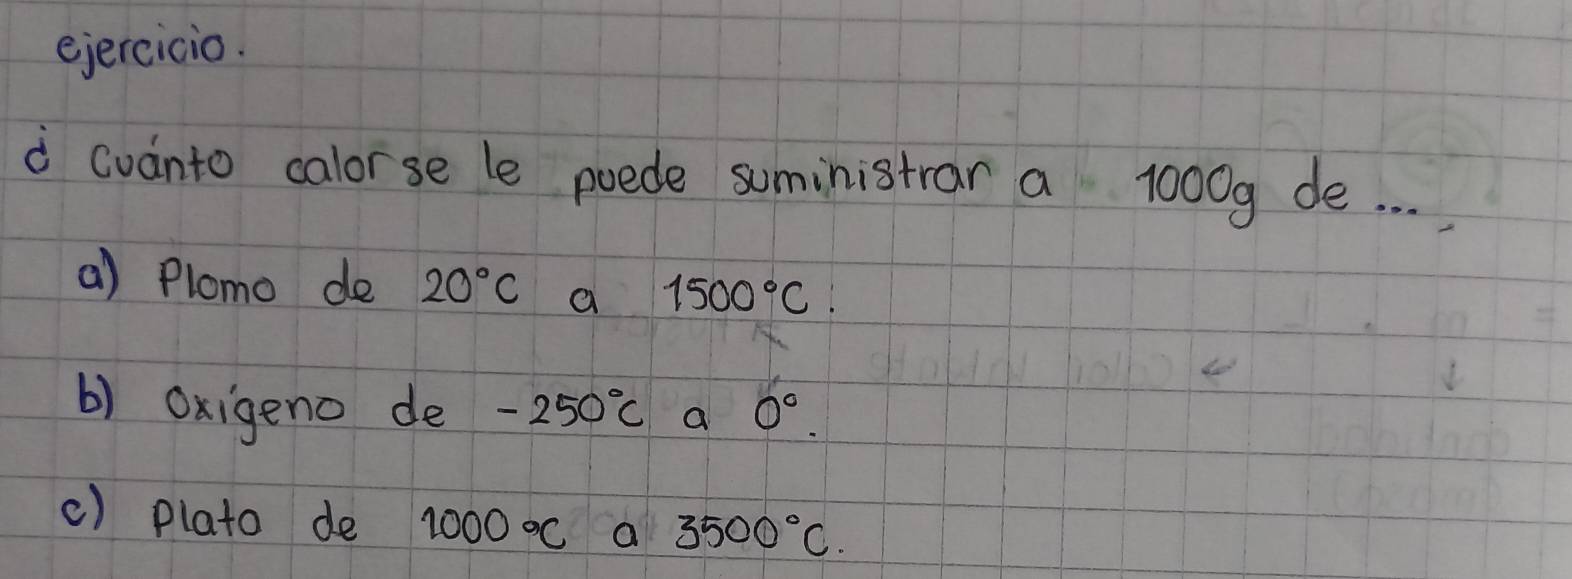 ejercicio.
¿ Cuánto calor se le puede suministrar a 1000g de...
a) Plomo de 20°C a 1500°C.
b) Oxígeno de -250°C a 0°.
c) Plata de 1000°C a 3500°C.